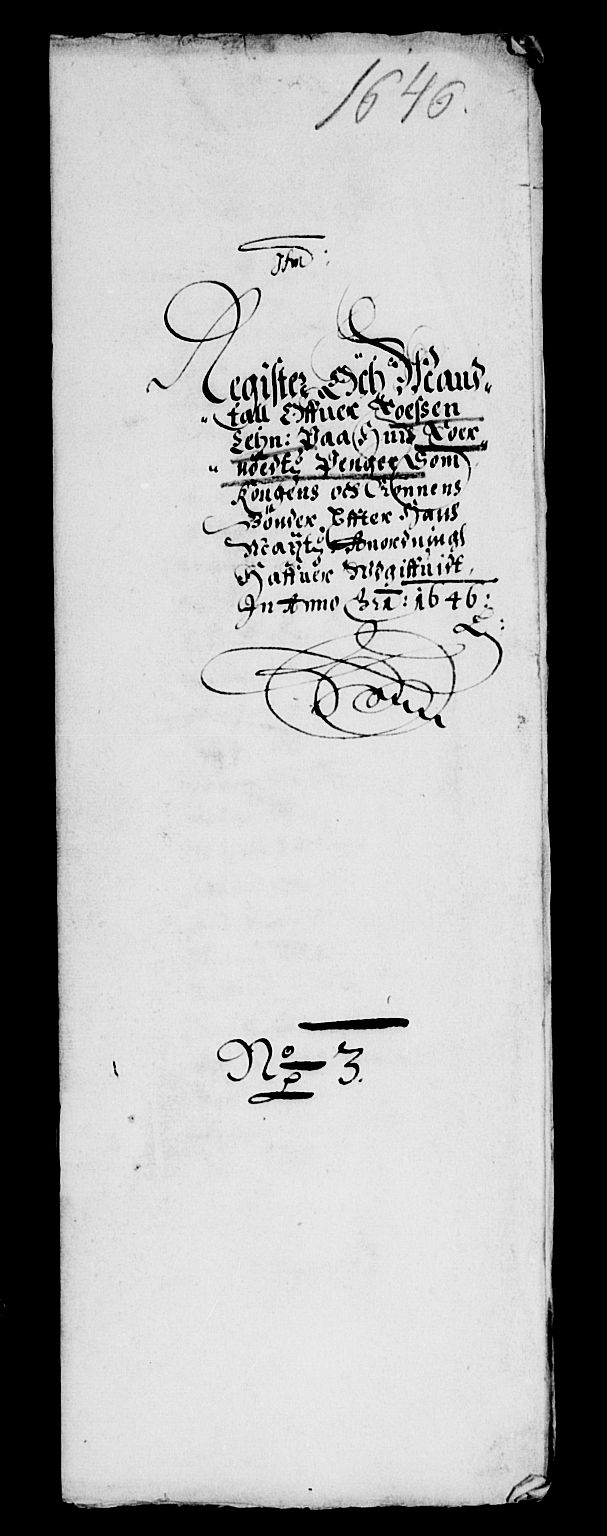 1646.
Register Och Mand-
tall Offuer Koessen
Lehn: Paa Huis Koer-
Penger Som
Kongens och Cronnens
Bönder Effter Hans
Maÿtz Anordningh
Haffuer Udgiffuidt,
In Anno 1646:
No 3.